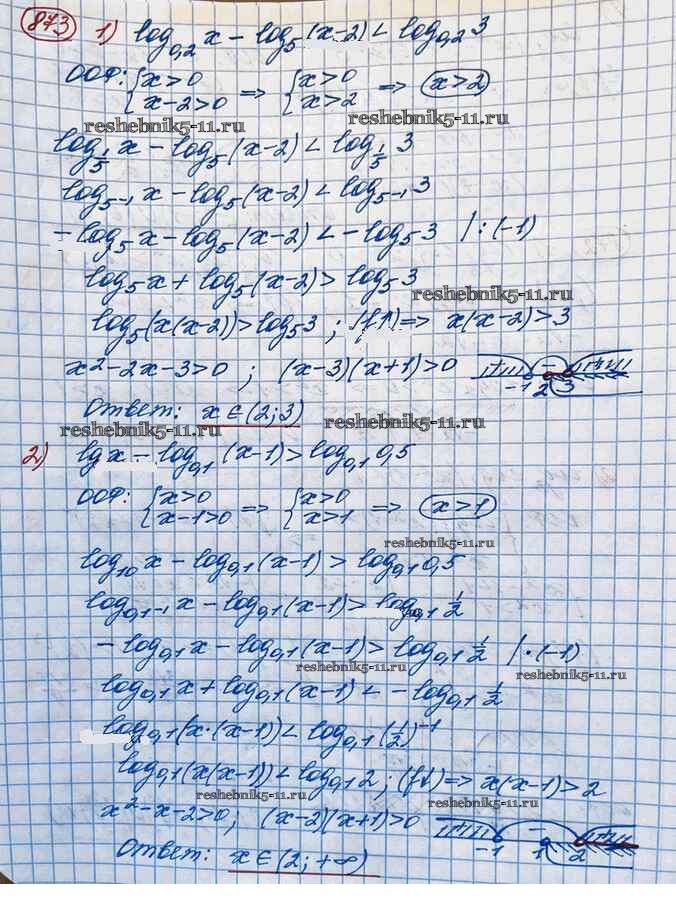 873 1) log₀,₂ x − log₅ (x−2) < log₀,₂ 3
ООФ: { x>0 x−2>0 => { x>0 x>2 => x>2
reshebnik5-11.ru reshebnik5-11.ru
log₁/₅ x − log₅ (x−2) < log₁/₅ 3
log₅₋₁ x − log₅ (x−2) < log₅₋₁ 3
− log₅ x − log₅ (x−2) < − log₅ 3 / : (−1)
log₅ x + log₅ (x−2) > log₅ 3
reshebnik5-11.ru
log₅ (x(x−2)) > log₅ 3 ; (f↑) => x(x−2) > 3
x² − 2x − 3 > 0 ; (x−3)(x+1) > 0 + − + −1 2 3
Ответ: x ∈ (2; 3)
reshebnik5-11.ru reshebnik5-11.ru
2) lg x − log₀,₁ (x−1) > log₀,₁ 0,5
ООФ: { x>0 x−1>0 => { x>0 x>1 => x>1
reshebnik5-11.ru
log₁₀ x − log₀,₁ (x−1) > log₀,₁ 0,5
log₀,₁₋₁ x − log₀,₁ (x−1) > log₀,₁ 1/2
− log₀,₁ x − log₀,₁ (x−1) > log₀,₁ 1/2 / · (−1)
reshebnik5-11.ru reshebnik5-11.ru
log₀,₁ x + log₀,₁ (x−1) < − log₀,₁ 1/2
log₀,₁ (x·(x−1)) < log₀,₁ (1/2)⁻¹
log₀,₁ (x(x−1)) < log₀,₁ 2 ; (f↓) => x(x−1) > 2
reshebnik5-11.ru reshebnik5-11.ru
x² − x − 2 > 0 ; (x−2)(x+1) > 0 + − + −1 1 2
Ответ: x ∈ (2; +∞)